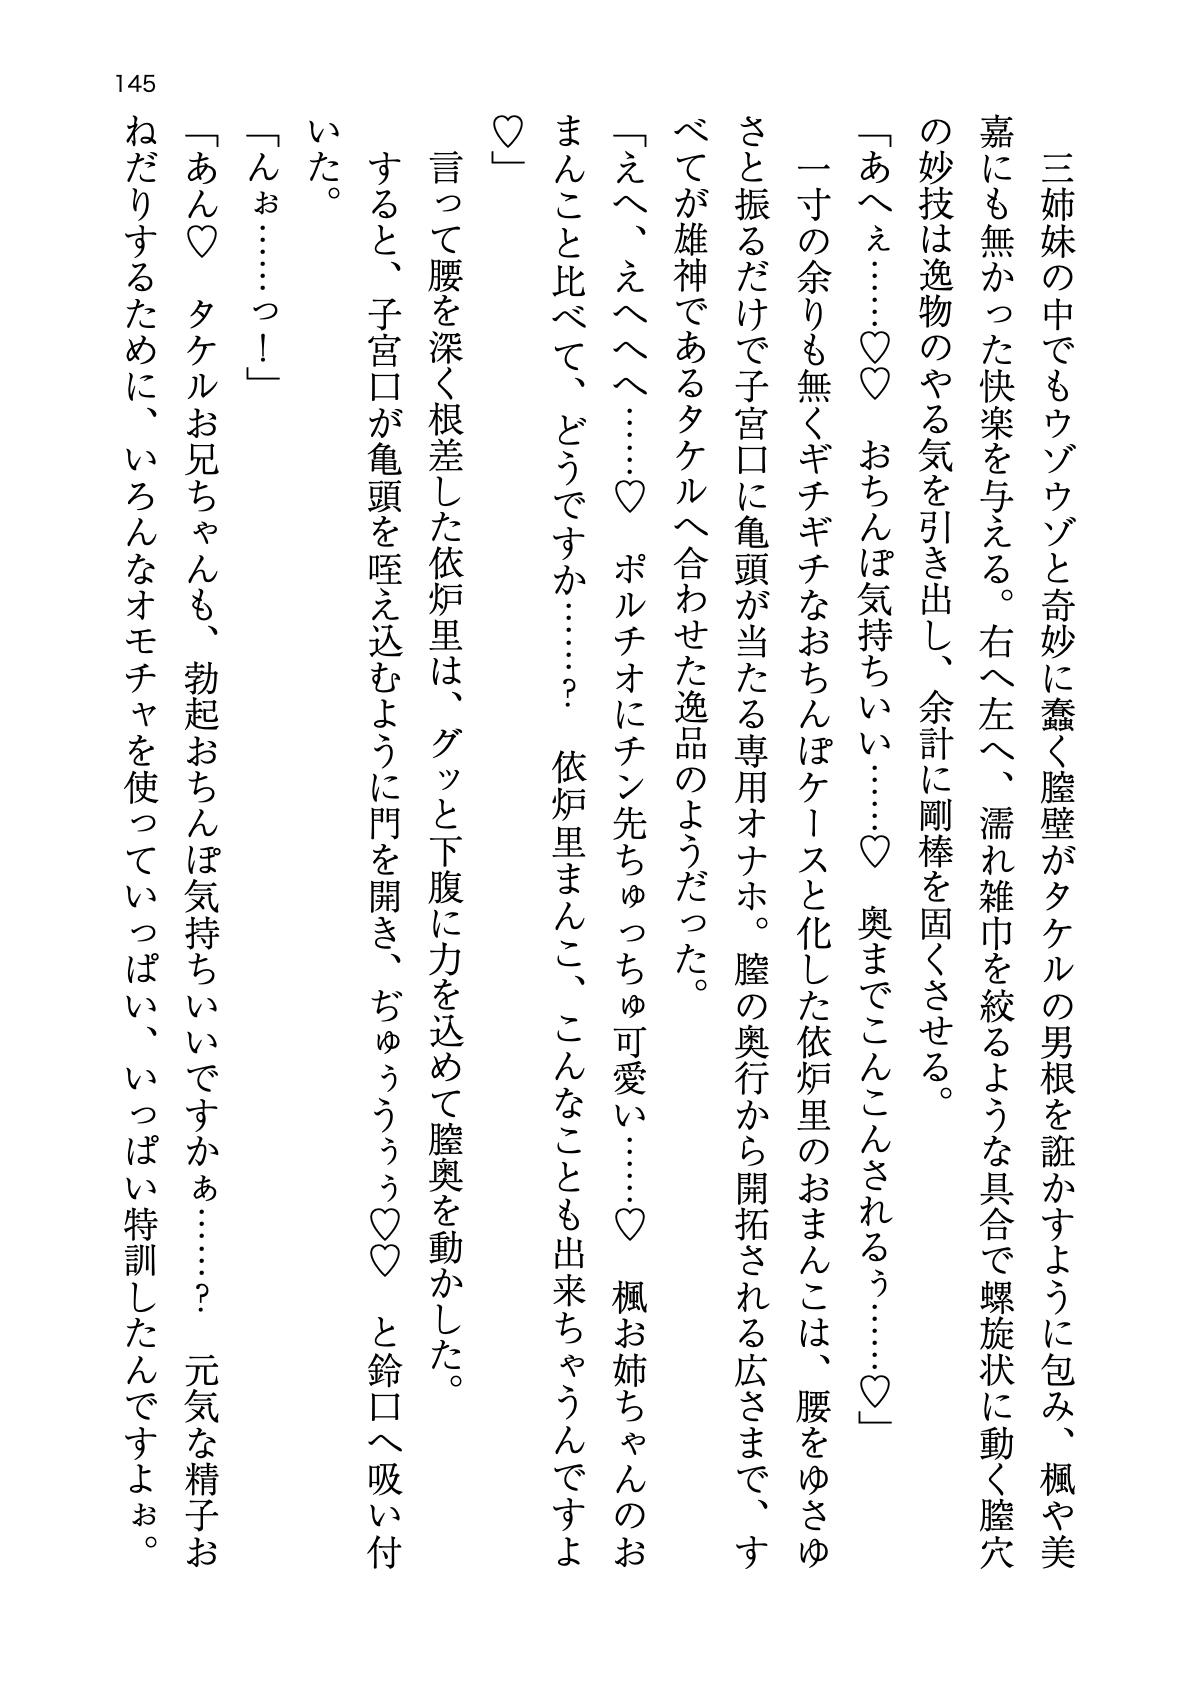 145
三姉妹の中でもウゾウゾと奇妙に蠢く膣壁がタケルの男根を誑かすように包み、楓や美
嘉にも無かった快楽を与える。右へ左へ、濡れ雑巾を絞るような具合で螺旋状に動く膣穴
の妙技は逸物のやる気を引き出し、余計に剛棒を固くさせる。
「あへぇ……♡♡　おちんぽ気持ちいい……♡　奥までこんこんされるぅ……♡」
一寸の余りも無くギチギチなおちんぽケースと化した依炉里のおまんこは、腰をゆさゆ
さと振るだけで子宮口に亀頭が当たる専用オナホ。膣の奥行から開拓される広さまで、す
べてが雄神であるタケルへ合わせた逸品のようだった。
「えへ、えへへへ……♡　ポルチオにチン先ちゅっちゅ可愛い……♡　楓お姉ちゃんのお
まんこと比べて、どうですか……？　依炉里まんこ、こんなことも出来ちゃうんですよ
♡」
言って腰を深く根差した依炉里は、グッと下腹に力を込めて膣奥を動かした。
すると、子宮口が亀頭を咥え込むように門を開き、ぢゅぅうぅぅ♡♡　と鈴口へ吸い付
いた。
「んぉ……っ！」
「あん♡　タケルお兄ちゃんも、勃起おちんぽ気持ちいいですかぁ……？　元気な精子お
ねだりするために、いろんなオモチャを使っていっぱい、いっぱい特訓したんですよぉ。